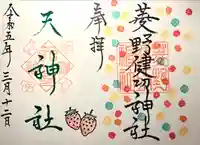 奉拝
菱野健功神社
天神社
令和五年三月十二日